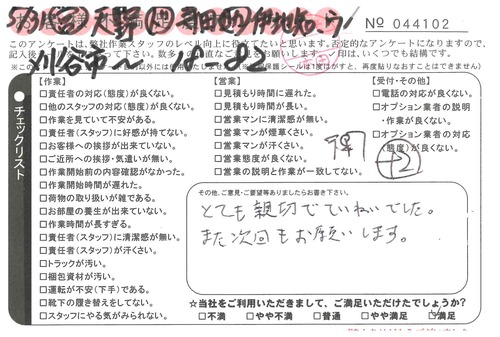 № 044102
このアンケートは、弊社作業スタッフのレベル向上に役立てたいと思います。否定的なアンケートになりますが
チェックリスト
【作業】
□責任者の対応(態度)が良くない。
□他のスタッフの対応(態度)が良くない。
□作業を見ていて不安がある。
□責任者(スタッフ)に好感が持てない。
□お客様への挨拶が出来ていない。
□ご近所への挨拶・気遣いが無い。
□作業開始前の内容確認がなかった。
□作業開始時間が遅れた。
□荷物の取り扱いが雑である。
□お部屋の養生が出来ていない。
□作業時間が長すぎる。
□責任者(スタッフ)に清潔感が無い。
□責任者(スタッフ)が汗くさい。
□トラックが汚い。
□梱包資材が汚い。
□運転が不安(下手)である。
□靴下の履き替えをしてない。
□スタッフにやる気がみられない。
【営業】
□見積もり時間に遅れた。
□見積もり時間が長い。
□営業マンに清潔感が無い。
□営業マンが煙草くさい。
□営業マンが汗くさい。
□営業態度が良くない。
□営業の説明と作業が一致してない。
【受付・その他】
□電話の対応が良くない。
□オプション業者の説明
・作業が良くない。
□オプション業者の対応
(態度)が良くない。
+2
その他、ご意見・ご要望等ありましたらお書き下さい。
とても親切でていねいでした。
また次回もお願いします。
☆当社をご利用いただきまして、ご満足いただけたでしょうか?
□不満 □やや不満 □普通 □やや満足 □満足